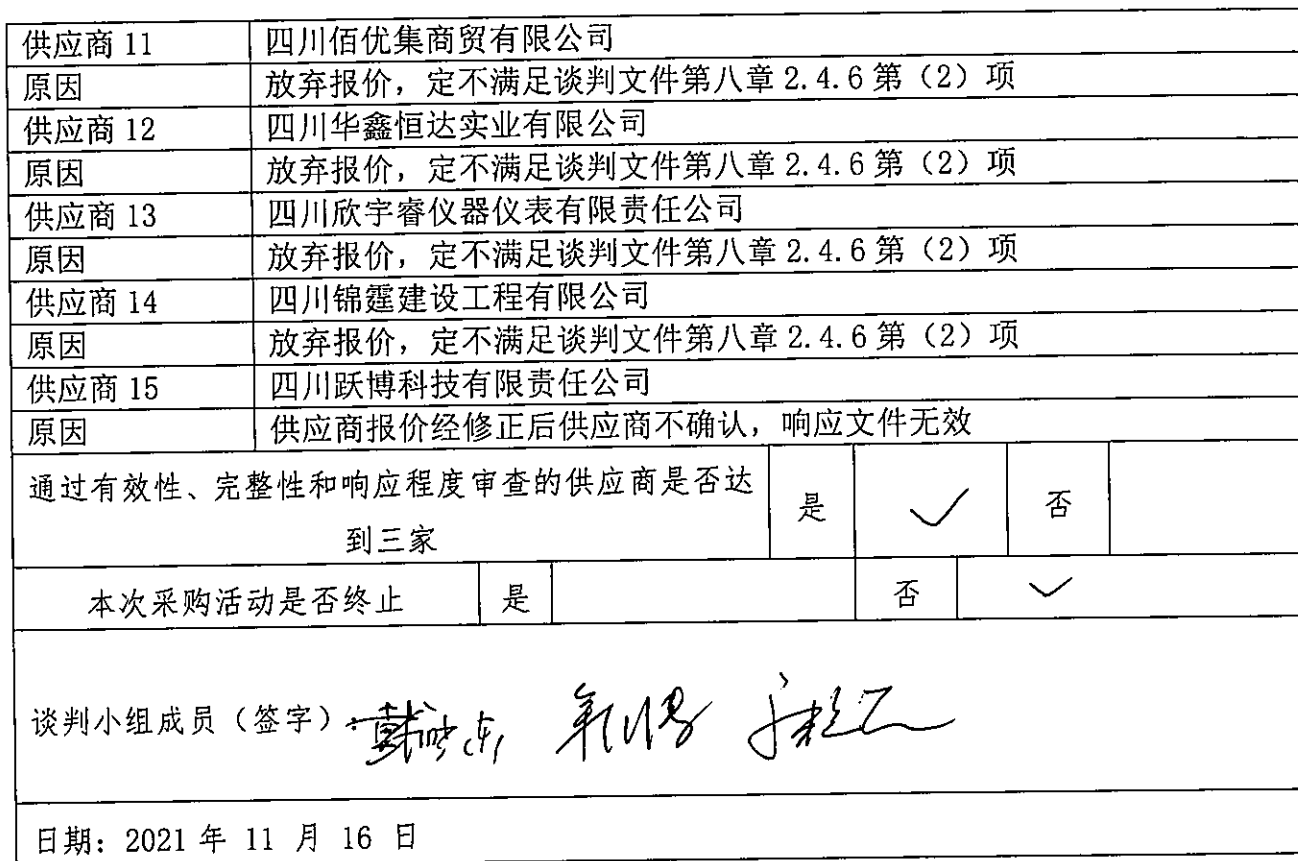 供应商 11 四川佰优集商贸有限公司
原因 放弃报价，定不满足谈判文件第八章 2.4.6 第（2）项
供应商 12 四川华鑫恒达实业有限公司
原因 放弃报价，定不满足谈判文件第八章 2.4.6 第（2）项
供应商 13 四川欣宇睿仪器仪表有限责任公司
原因 放弃报价，定不满足谈判文件第八章 2.4.6 第（2）项
供应商 14 四川锦霆建设工程有限公司
原因 放弃报价，定不满足谈判文件第八章 2.4.6 第（2）项
供应商 15 四川跃博科技有限责任公司
原因 供应商报价经修正后供应商不确认，响应文件无效
通过有效性、完整性和响应程度审查的供应商是否达
到三家 是 ✓ 否
本次采购活动是否终止 是 否 ✓
谈判小组成员（签字）：
日期：2021 年 11 月 16 日